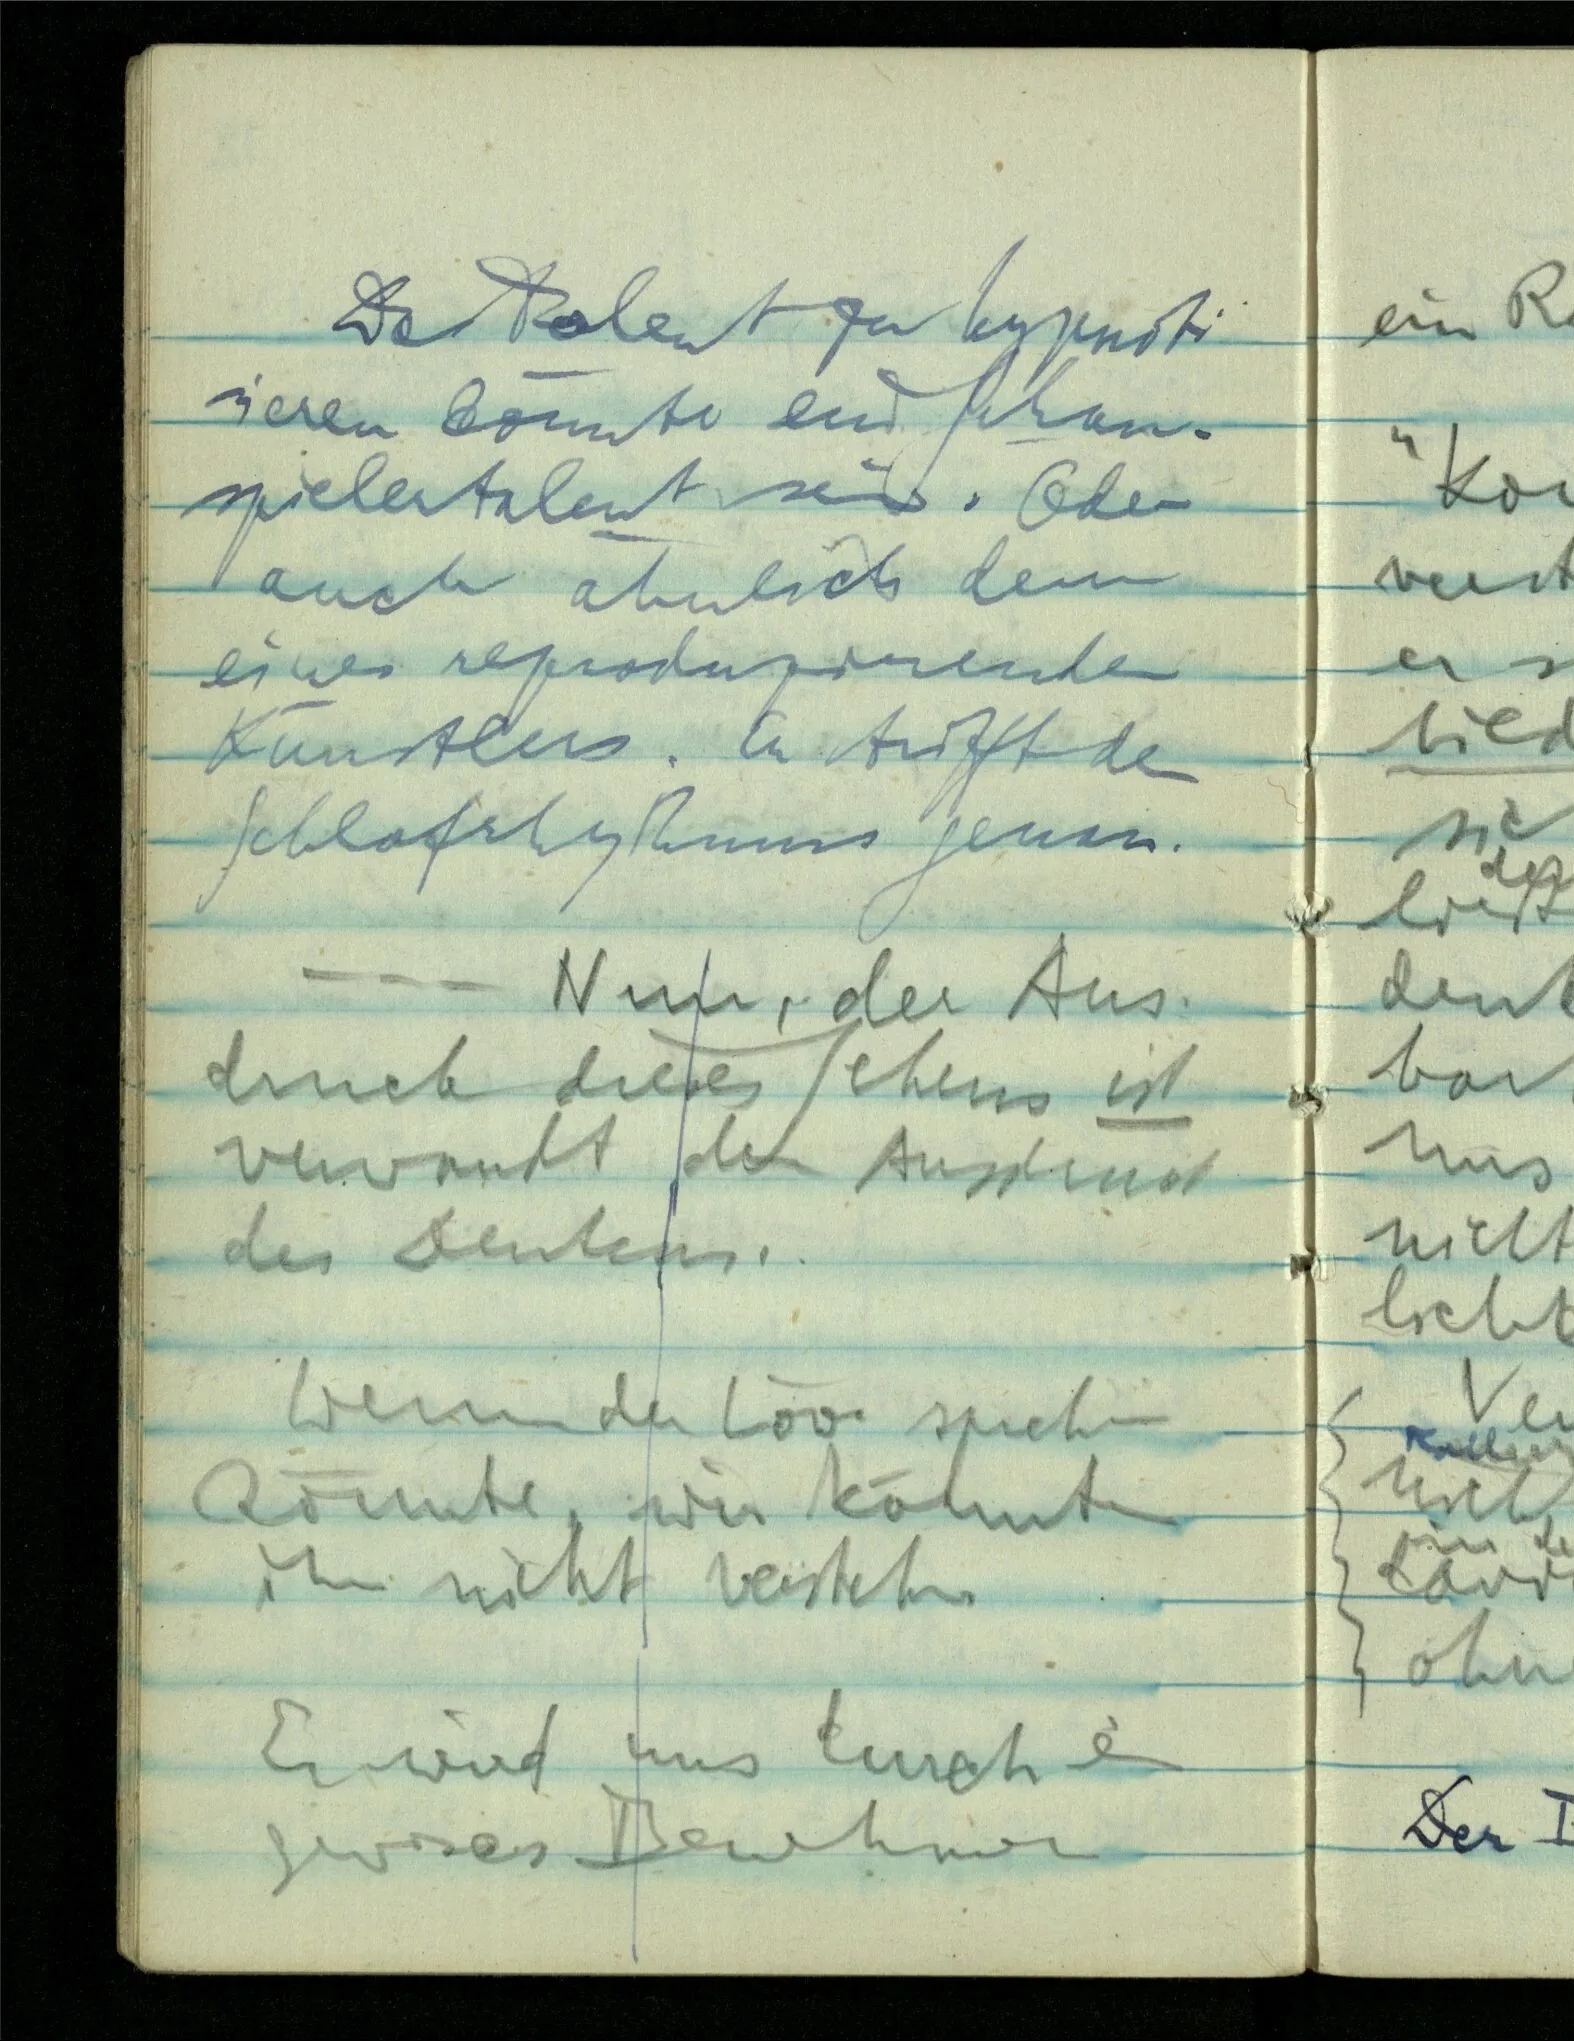 Das Talent zu hypnoti
sieren könnte ein Schau-
spielertalent sein. Oder
auch ähnlich dem
eines reproduzierenden
Künstlers. Er trifft den
Schlafrhythmus genau.
--- Nun, der Aus-
druck dieses Sehens ist
verwandt dem Ausdruck
des Denkens.
Wenn der Löwe sprechen
könnte, wir könnten
ihn nicht verstehn
Er wird uns durch ein
gewisses Benehmen
ein
"
er
sie
nicht
Der